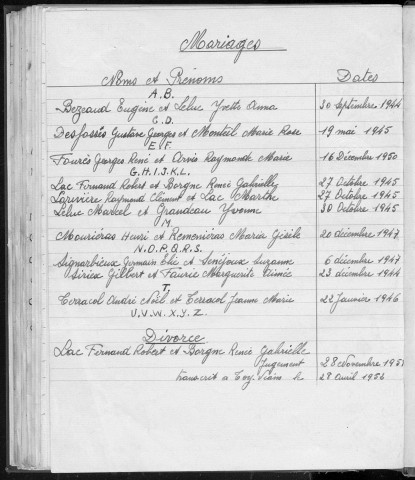 Mariages
Noms et Prénoms Dates
A.B.
Bezeaud Eugène et Leluc Yvette Anna 30 Septembre 1944
C.D.
Desfossés Gustave Georges et Monteil Marie Rose 19 mai 1945
E.F.
Faurès Georges René et Arvis Raymonde Marie 16 Décembre 1950
G.H.I.J.K.L.
Lac Fernand Robert et Borgne Renée Gabrielle 27 Octobre 1945
Raymond Clément et Lac Marthe 27 Octobre 1945
Leluc Marcel et Grandeau Yvonne 30 Octobre 1945
M.
Mouriéras Henri et Remeniéras Maria Gisèle 20 décembre 1947
N.O.P.Q.R.S.
Signarbieux Germain Elie et Sénéjoux Suzanne 6 décembre 1947
Sirieix Gilbert et Faurie Marguerite Aimée 23 décembre 1944
T.
Terracol André Noël et Terracol Jeanne Marie 22 Janvier 1946
U.V.W.X.Y.Z.
Divorce
Lac Fernand Robert et Borgne Renée Gabrielle
Jugement 28 Novembre
transcrit à le 28 avril 1956